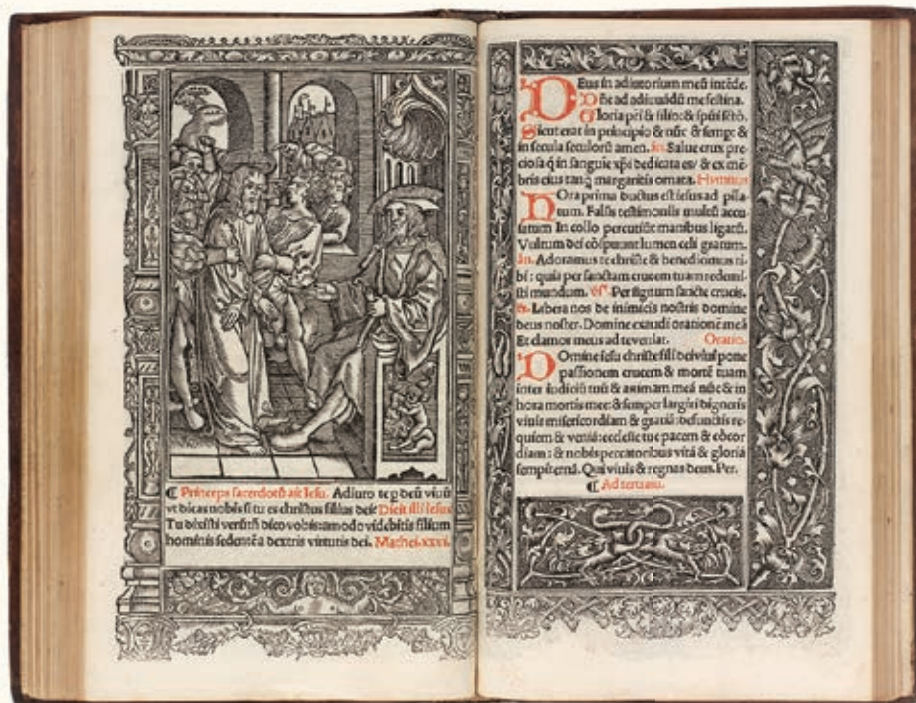 ¶ Princeps sacerdotū ait Iesu. Adiuro te ꝑ deū viuū
vt dicas nobis si tu es christus filius dei: Dicit illi Iesus
Tu dixisti verūtn̄ dico vobis: amodo videbitis filium
hominis sedentē a dextris virtutis dei. Mathei. xxvi.
DEus in adiutorium meū intēde.
Dn̄e ad adiuuādū me festina.
Gloria pr̄i & filio: & spūi sctō.
Sicut erat in principio & nūc & semp̱: &
in secula seculorū amen. Salue crux pre
ciosa q̄ in sanguīe xp̄i dedicata es/ & ex mē
bris eius tanq̄ margaritis ornata. Hymnus
HOra prima ductus est iesus ad pila
tum. Falsis testimoniis multū accu
satum In collo percutiūt manibus ligatū.
Vultum dei cōspuunt lumen celi gratum.
Adoramus te christe & benedicimus ti
bi: quia per sanctam crucem tuam redemi
sti mundum. Per signum sancte crucis.
Libera nos de inimicis nostris domine
deus noster. Domine exaudi orationē meā
Et clamor meus ad te veniat. Oratio.
DOmine iesu christe fili dei viui pone
passionem crucem & mortē tuam
inter iudiciū tuū & animam meā nūc & in
hora mortis mee: & semper largiri digneris
viuis misericordiam & gratiā: defunctis re
quiem & veniā: ecclesie tue pacem & cōcor
diam: & nobis peccatoribus vitā & gloriā
sempiternā. Qui viuis & regnas deus. Per.
¶ Ad tertiam.